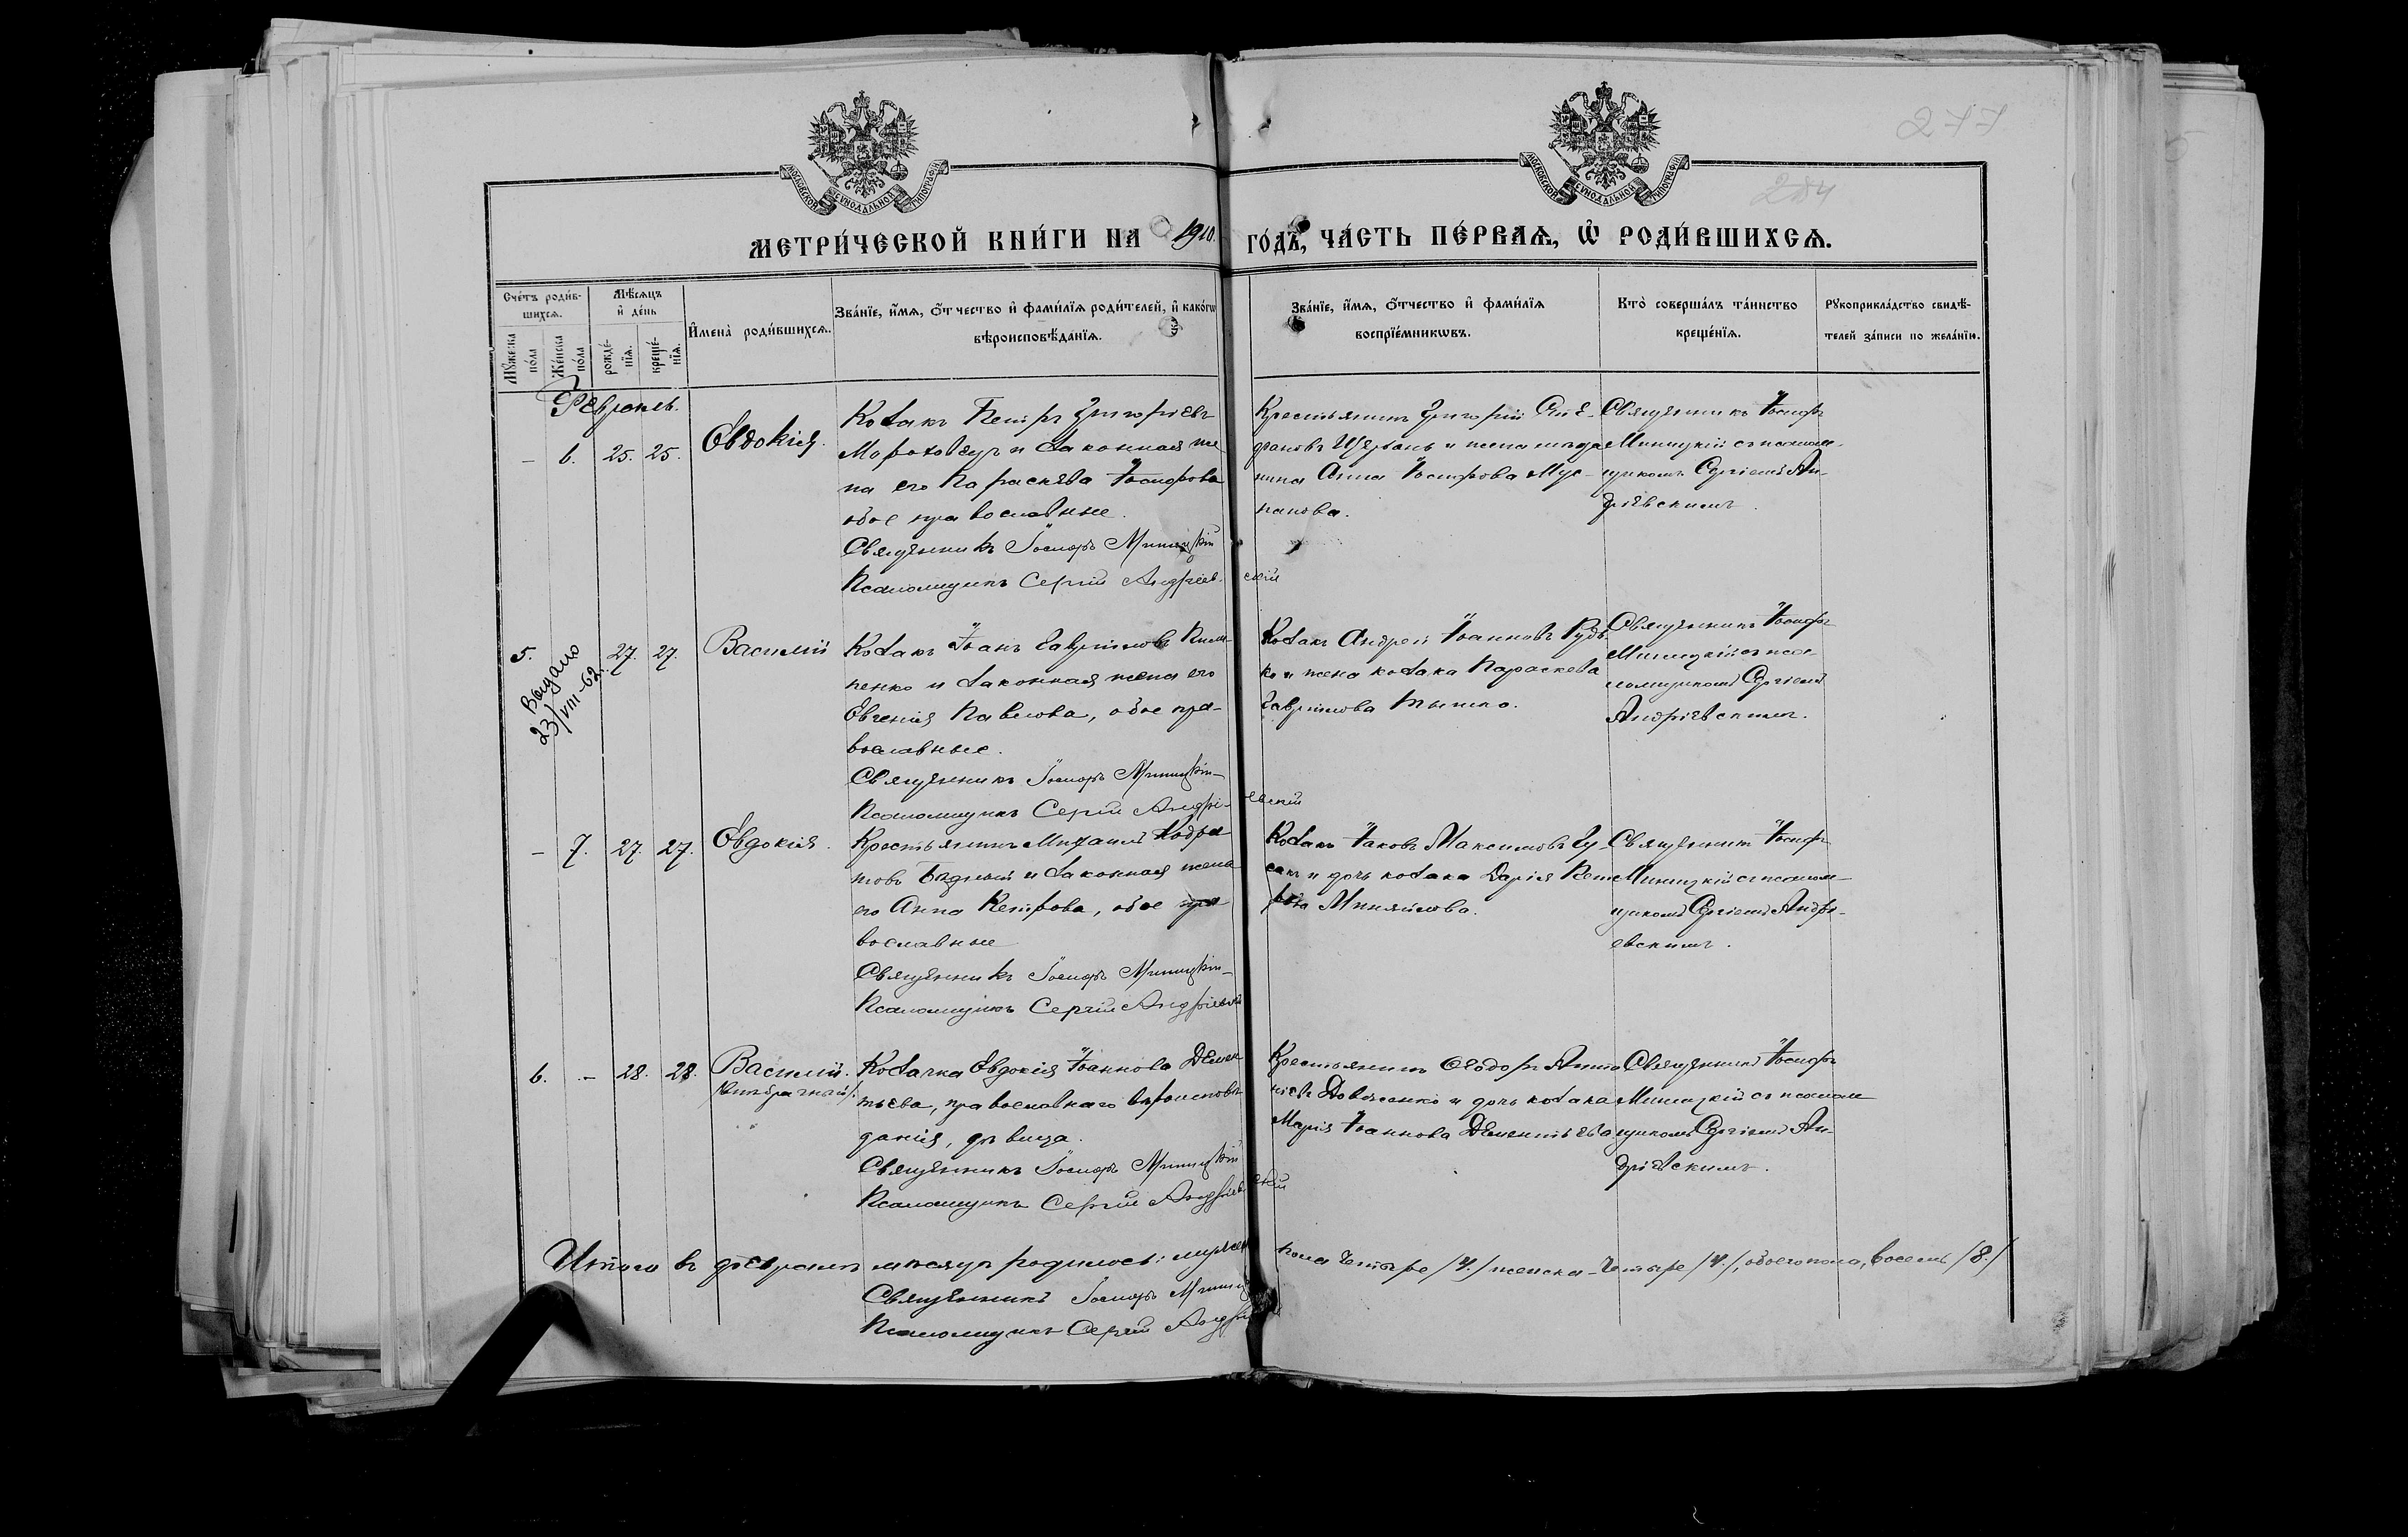 277
284
МОСКОВСКОЙ СѴНОДАЛЬНОЙ ТИПОГРАФІИ
МОСКОВСКОЙ СѴНОДАЛЬНОЙ ТИПОГРАФІИ
МЕТРИ́ЧЕСКОЙ КНИ́ГИ НА 1910. ГО́ДЪ, ЧА́СТЬ ПЕ́РВАѦ, Ѽ РОДИ́ВШИХСѦ.
Сче́тъ роди́в-
шихсѧ.
Мꙋ́жеска
по́ла
Же́нска
по́ла
Мѣ́сѧцъ
и҆ де́нь
рожде́-
нїѧ.
креще́-
нїѧ.
И҆мена̀ роди́вшихсѧ.
Зва́нїе, и҆́мѧ, ѻ҆́тчество и҆ фами́лїѧ роди́телей, и҆ како́гѡ
вѣроисповѣ́данїѧ.
Зва́нїе, и҆́мѧ, ѻ҆́тчество и҆ фами́лїѧ
воспрїе́мникѡвъ.
Кто̀ соверша́лъ та́инство
креще́нїѧ.
Рꙋкоприкла́дство свидѣ́-
телей за́писи по жела́нїю.
Февраль.
— 6. 25. 25. Евдокія.
Козакъ Петръ Григоріевъ
и законная же-
на его Параскева Іосифова
обое православные.
Священникъ Іосифъ Миницкій
Псаломщикъ Сергій Андріевскій
Крестьянинъ Григорій Сте-
фановъ Щербань и жена
Анна Іосифова
Священникъ Іосифъ
Миницкій съ псалом-
щикомъ Сергіемъ Ан-
дріевскимъ.
5. 27. 27. Василій
Выдано
23/VIII-62
Козакъ Іоанъ Гавріиловъ
и законная жена его
Евгенія Павлова, обое пра-
вославные.
Священникъ Іосифъ Миницкій
Псаломщикъ Сергій Андріевскій
Козакъ Андрей Іоанновъ Рудь-
ко и жена козака Параскева
Гавріилова
Священникъ Іосифъ
Миницкій съ пса-
ломщикомъ Сергіемъ
Андріевскимъ.
— 7. 27. 27. Евдокія.
Крестьянинъ Михаилъ Кодра-
товъ Бѣдный и законная жена
его Анна Петрова, обое пра-
вославные
Священникъ Іосифъ Миницкій
Псаломщикъ Сергій Андріевскій
Козакъ Іаковъ Максимовъ Гу-
сакъ и дочь козака Дарія Пет-
рова Миняйлова.
Священникъ Іосифъ
Миницкій съ псалом-
щикомъ Сергіемъ Андрі-
евскимъ.
6. — 28. 28. Василій.
/внѣбрачный/.
Козачка Евдокія Іоаннова Демен-
тьева, православнаго вѣроисповѣ-
данія, дѣвица.
Священникъ Іосифъ Миницкій
Псаломщикъ Сергій Андріевскій
Крестьянинъ Ѳеодоръ
и дочь козака
Марія Іоаннова Дементьева
Священникъ Іосифъ
Миницкій съ псалом-
щикомъ Сергіемъ Ан-
дріевскимъ.
Итого въ февралѣ мѣсяцѣ родилось: мужеска пола четыре /4./ женска-четыре /4./, обоего пола, восемь /8./
Священникъ Іосифъ
Псаломщикъ Сергій